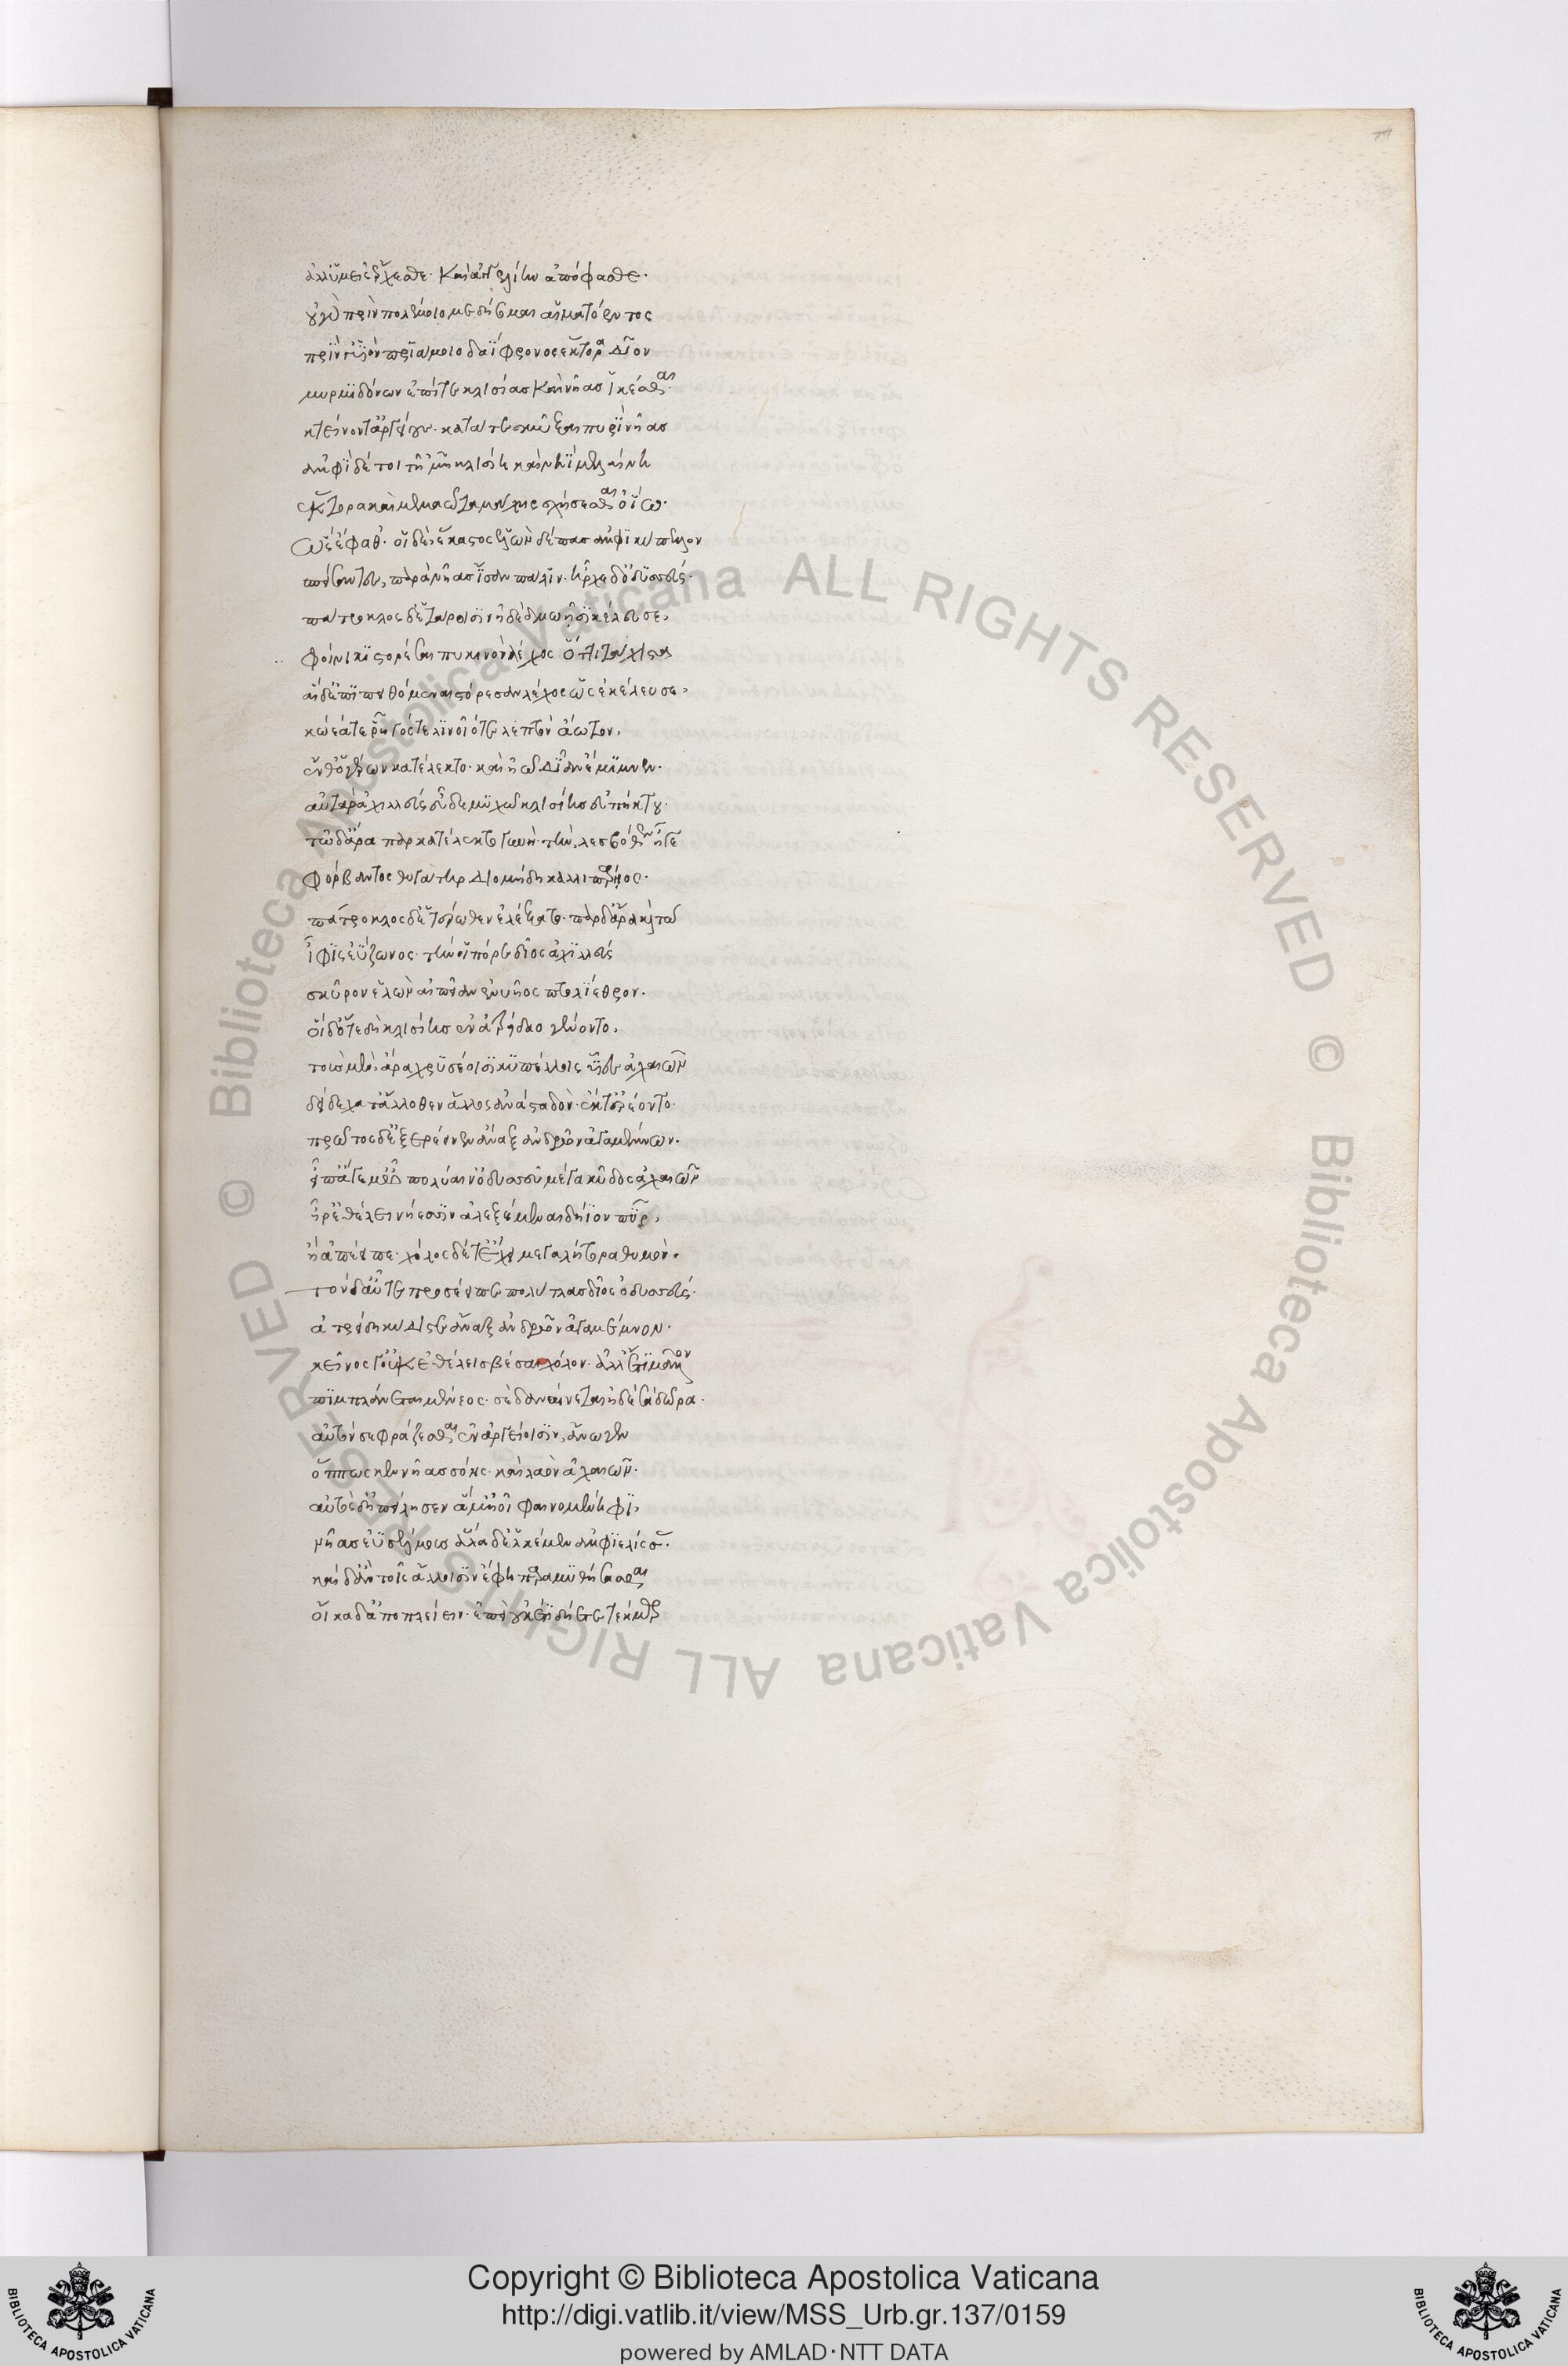 ἀλλ' ὑμεῖς ἔρχεσθε· καὶ ἀγγελίην ἀπόφασθε·
οὐ γὰρ πρὶν πολέμοιο μεδήσομαι αἱματόεντος
πρίν γ' υἱὸν πριάμοιο δαΐφρονος ἕκτορα δῖον
μυρμιδόνων ἐπί τε κλισίας καὶ νῆας ἱκέσθαι·
κτείνοντ' ἀργείους· κατά τε σμῦξαι πυρὶ νῆας
ἀμφὶ δέ τοι τῇ 'μῇ κλισίῃ καὶ νηῒ μελαίνῃ
ἕκτορα καὶ μεμαῶτα μάχης σχήσεσθαι ὀΐω·
ὣς ἔφαθ'· οἱ δὲ ἕκαστος ἑλὼν δέπας ἀμφικύπελλον
σπείσαντες, παρὰ νῆας ἴσαν πάλιν· ἦρχε δ' ὀδυσσεύς·
πάτροκλος δ' ἑτάροισιν ἠδὲ δμωῇσι κέλευσε,
φοίνικι στορέσαι πυκινὸν λέχος ὅττι τάχιστα
αἱ δ' ἐπιπειθόμεναι στόρεσαν λέχος ὡς ἐκέλευσε,
κώεά τε ῥῆγός τε λίνοιό τε λεπτὸν ἄωτον,
ἔνθ' ὁ γέρων κατέλεκτο· καὶ ἠῶ δῖαν ἔμιμνεν·
αὐτὰρ ἀχιλλεὺς εὗδε μυχῷ κλισίης εὐπήκτου·
τῷ δ' ἄρα παρκατέλεκτο γυνή· τὴν, λεσβόθεν ἦγε
φόρβαντος θυγάτηρ διομήδη καλλιπάρῃος·
πάτροκλος δ' ἑτέρωθεν ἐλέξατο· πὰρ δ' ἄρα καὶ τῷ
ἶφις ἐΰζωνος· τήν οἱ πόρε δῖος ἀχιλλεύς
σκῦρον ἑλὼν αἰπεῖαν ἐνυῆος πτολίεθρον·
οἱ δ' ὅτε δὴ κλισίῃσιν ἐν ἀτρείδαο γένοντο,
τοὺς μὲν ἄρα χρυσέοισι κυπέλλοις υἷες ἀχαιῶν
δειδέχατ' ἄλλοθεν ἄλλος ἀνασταδόν· ἔκ τ' ἐρέοντο·
πρῶτος δ' ἐξερέεινεν ἄναξ ἀνδρῶν ἀγαμέμνων·
εἴπ' ἄγε μ' ὦ πολύαιν' ὀδυσσεῦ μέγα κῦδος ἀχαιῶν
ἤ ῥ' ἐθέλει νήεσσιν ἀλεξέμεναι δήϊον πῦρ,
ἢ ἀπέειπε· χόλος δ' ἔτ' ἔχει μεγαλήτορα θυμόν·
τὸν δ' αὖτε προσέειπε πολύτλας δῖος ὀδυσσεύς·
ἀτρείδη κύδιστε ἄναξ ἀνδρῶν ἀγάμεμνον·
κεῖνός γ' οὐκ ἐθέλει σβέσαι χόλον· ἀλλ' ἔτι μᾶλλον
πιμπλάνεται μένεος· σὲ δ' ἀναίνεται ἠδὲ σὰ δῶρα·
αὐτόν σε φράζεσθαι ἐν ἀργείοισιν, ἄνωγεν
ὅππως κεν νῆας σόῃς· καὶ λαὸν ἀχαιῶν·
αὐτὸς δ' ἠπείλησεν ἅμ' ἠοῖ φαινομένηφι,
νῆας ἐϋσσέλμους ἅλαδ' ἑλκέμεν ἀμφιελίσσας·
καὶ δ' ἂν τοῖς ἄλλοισιν ἔφη παραμυθήσασθαι
οἴκαδ' ἀποπλείειν· ἐπεὶ οὐκέτι δήετε τέκμωρ
Copyright © Biblioteca Apostolica Vaticana
http://digi.vatlib.it/view/MSS_Urb.gr.137/0159
powered by AMLAD·NTT DATA